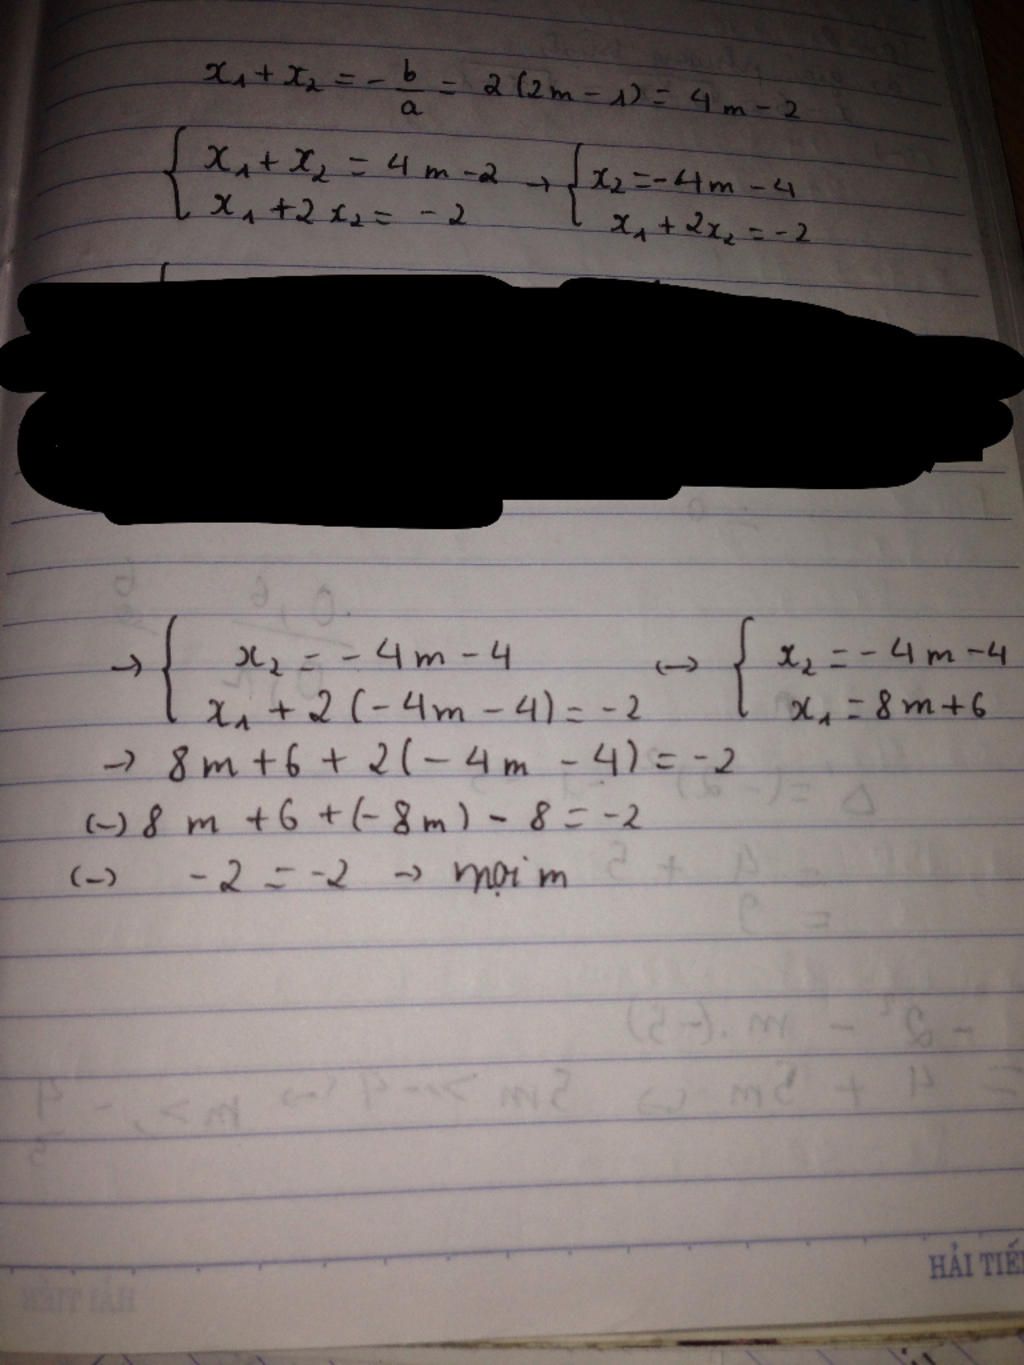 x₁ + x₂ = - b/a = 2(2m - 1) = 4m - 2
{ x₁ + x₂ = 4m - 2 → { x₂ = -4m - 4
x₁ + 2x₂ = -2 x₁ + 2x₂ = -2
→ { x₂ = -4m - 4 (→ { x₂ = -4m - 4
x₁ + 2(-4m - 4) = -2 x₁ = 8m + 6
→ 8m + 6 + 2(-4m - 4) = -2
(→) 8m + 6 + (-8m) - 8 = -2
(→) -2 = -2 → mọi m
HẢI TIẾ